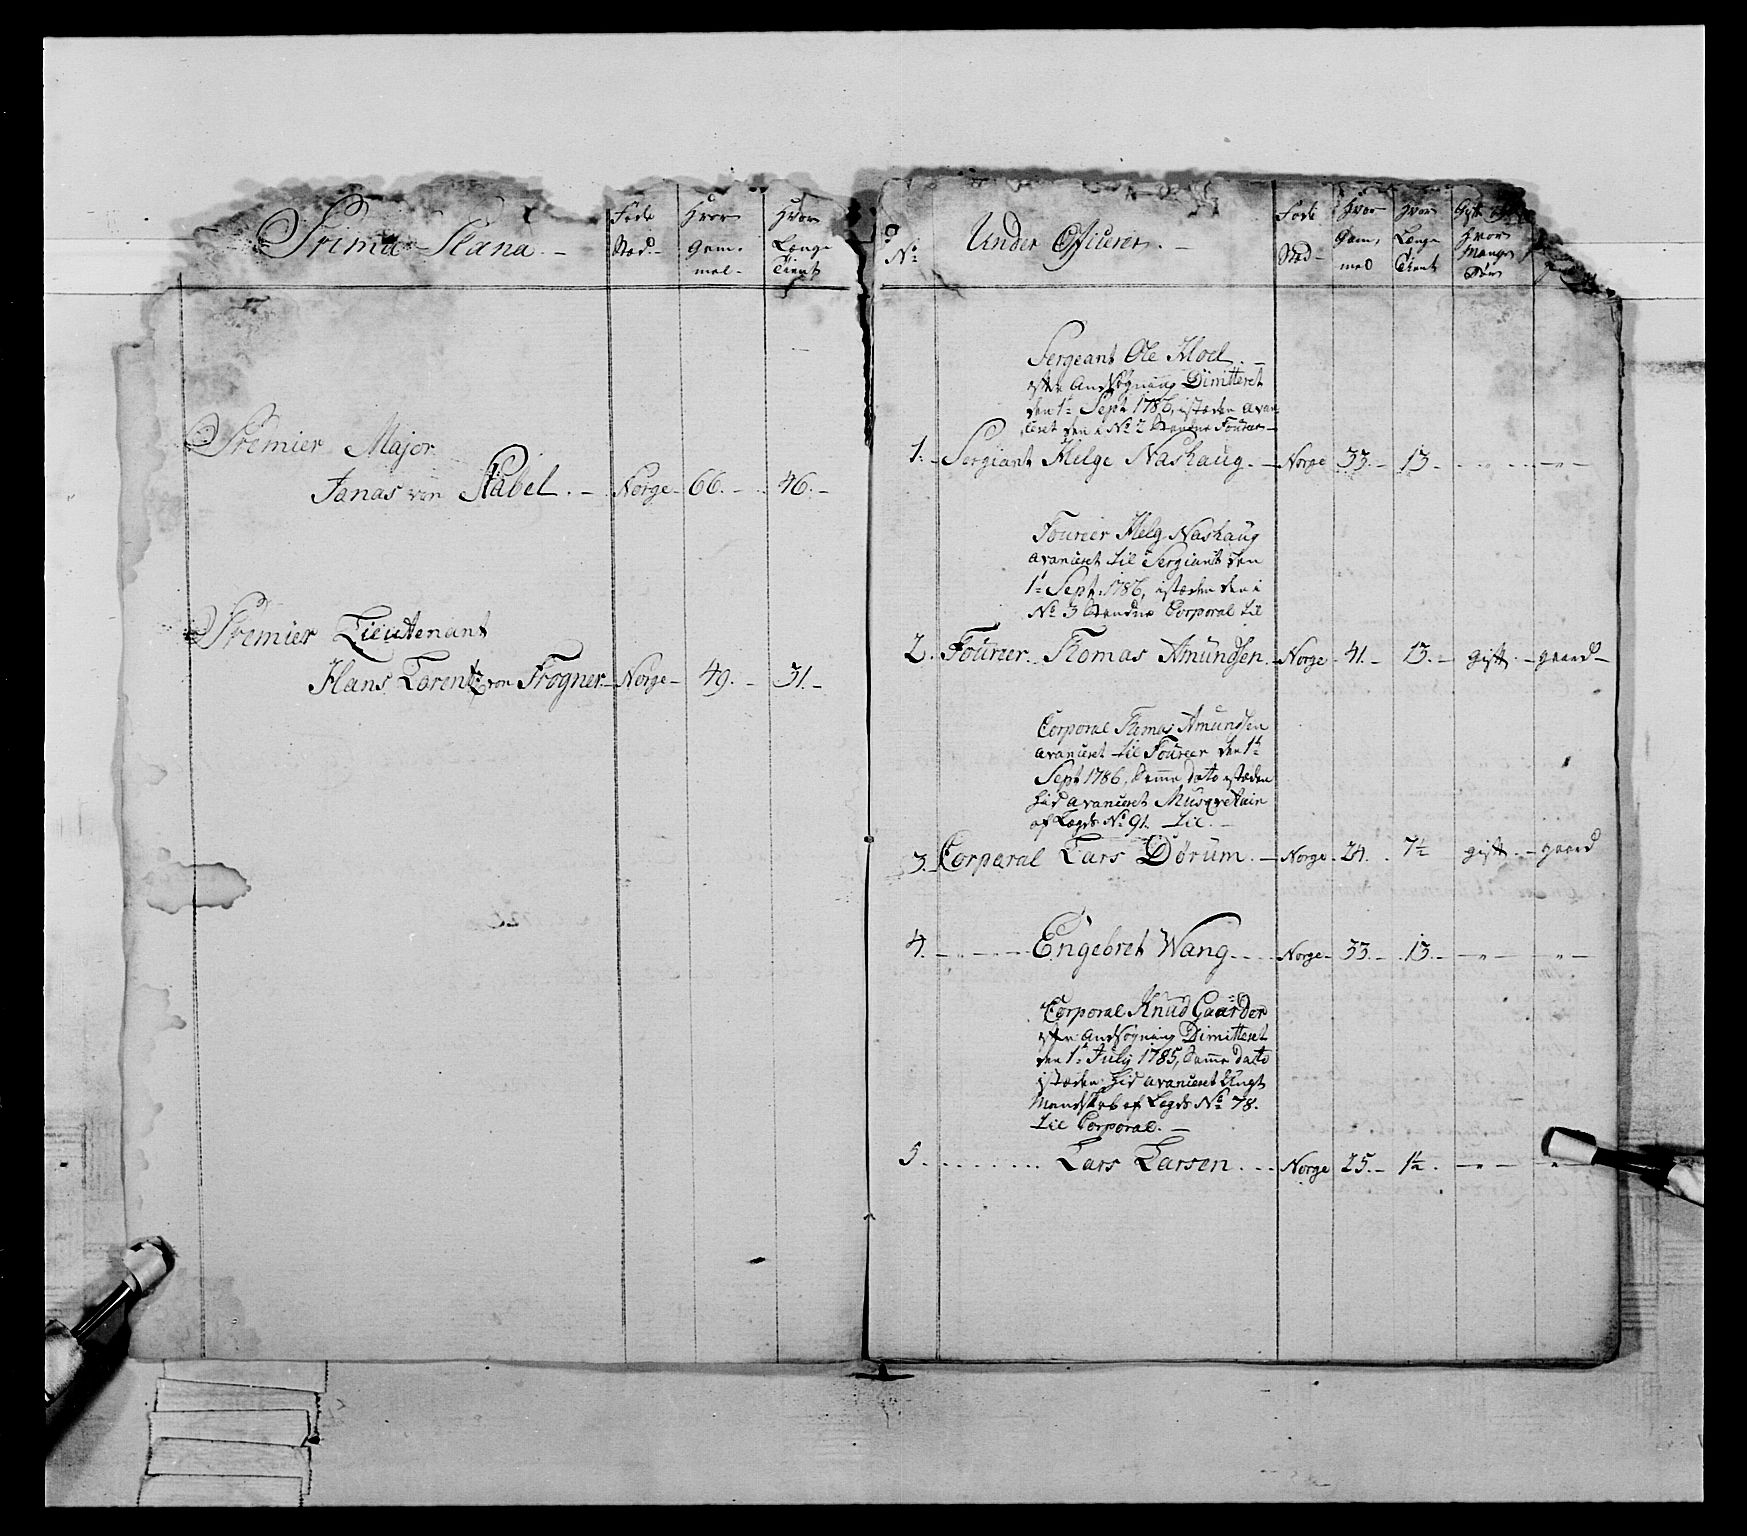 Prima Plana. -
Føde Stæd. -
Hvor Gam-mel -
Hvor Længe Tient
Premier Major
Jonas von Stabel. - Norge - 66. - 46. -
Premier Lieutenant
Hans Lorentz von Frogner. - Norge - 49. - 31. -
No
Under Officerer. -
Føde Stæd -
Hvor Gam-mel
Hvor Længe Tient
Gift
Hvor Mange Børn
Sergeant Ole Moel. -
efter Ansøgning Dimitteret
den 1te Sept 1786, istæden avan-
ceret den i No 2 Stændne Fourier -
1. Sergiant Helge Nashaug. - Norge 33. - 13. - " - " -
Fourier Helg Nashaug
avanceret til Sergiant den
1te Sept 1786, istæden den i
No 3 Stændne Corporal til
2. Fourier Tomas Amundsen. - Norge - 41. - 13. - gift. - gaard -
Corporal Tamas Amundsen
avanceret til Fourier den 1te
Sept 1786, Samme dato istæden
hid avanceret Musqvetair
af Lægds No 91. til. -
3. Corporal Lars Dørum. - Norge - 24. 7½ gift. - gaard
4. - " - - Engebret Wang. - Norge - 33. - 13. - " - " -
Corporal Knud Gaarder
efter Ansøgning Dimitteret
den 1te July 1785, Samme dato
istæden hid avanceret Ungt
Mandskab af Legds No 78.
til Corporal. -
5. Lars Larsen. Norge 25. - 1½. - " - " -